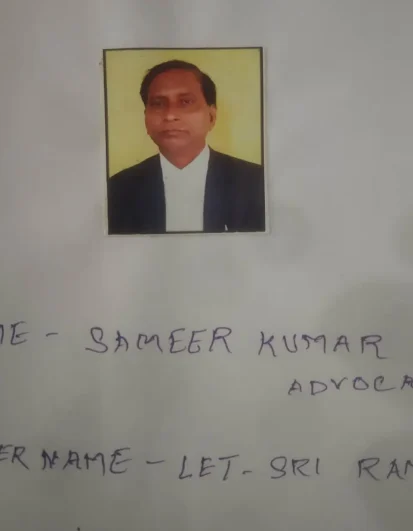 ME - SAMEER KUMAR
ADVOCA
ER NAME - LET- SRI RAM